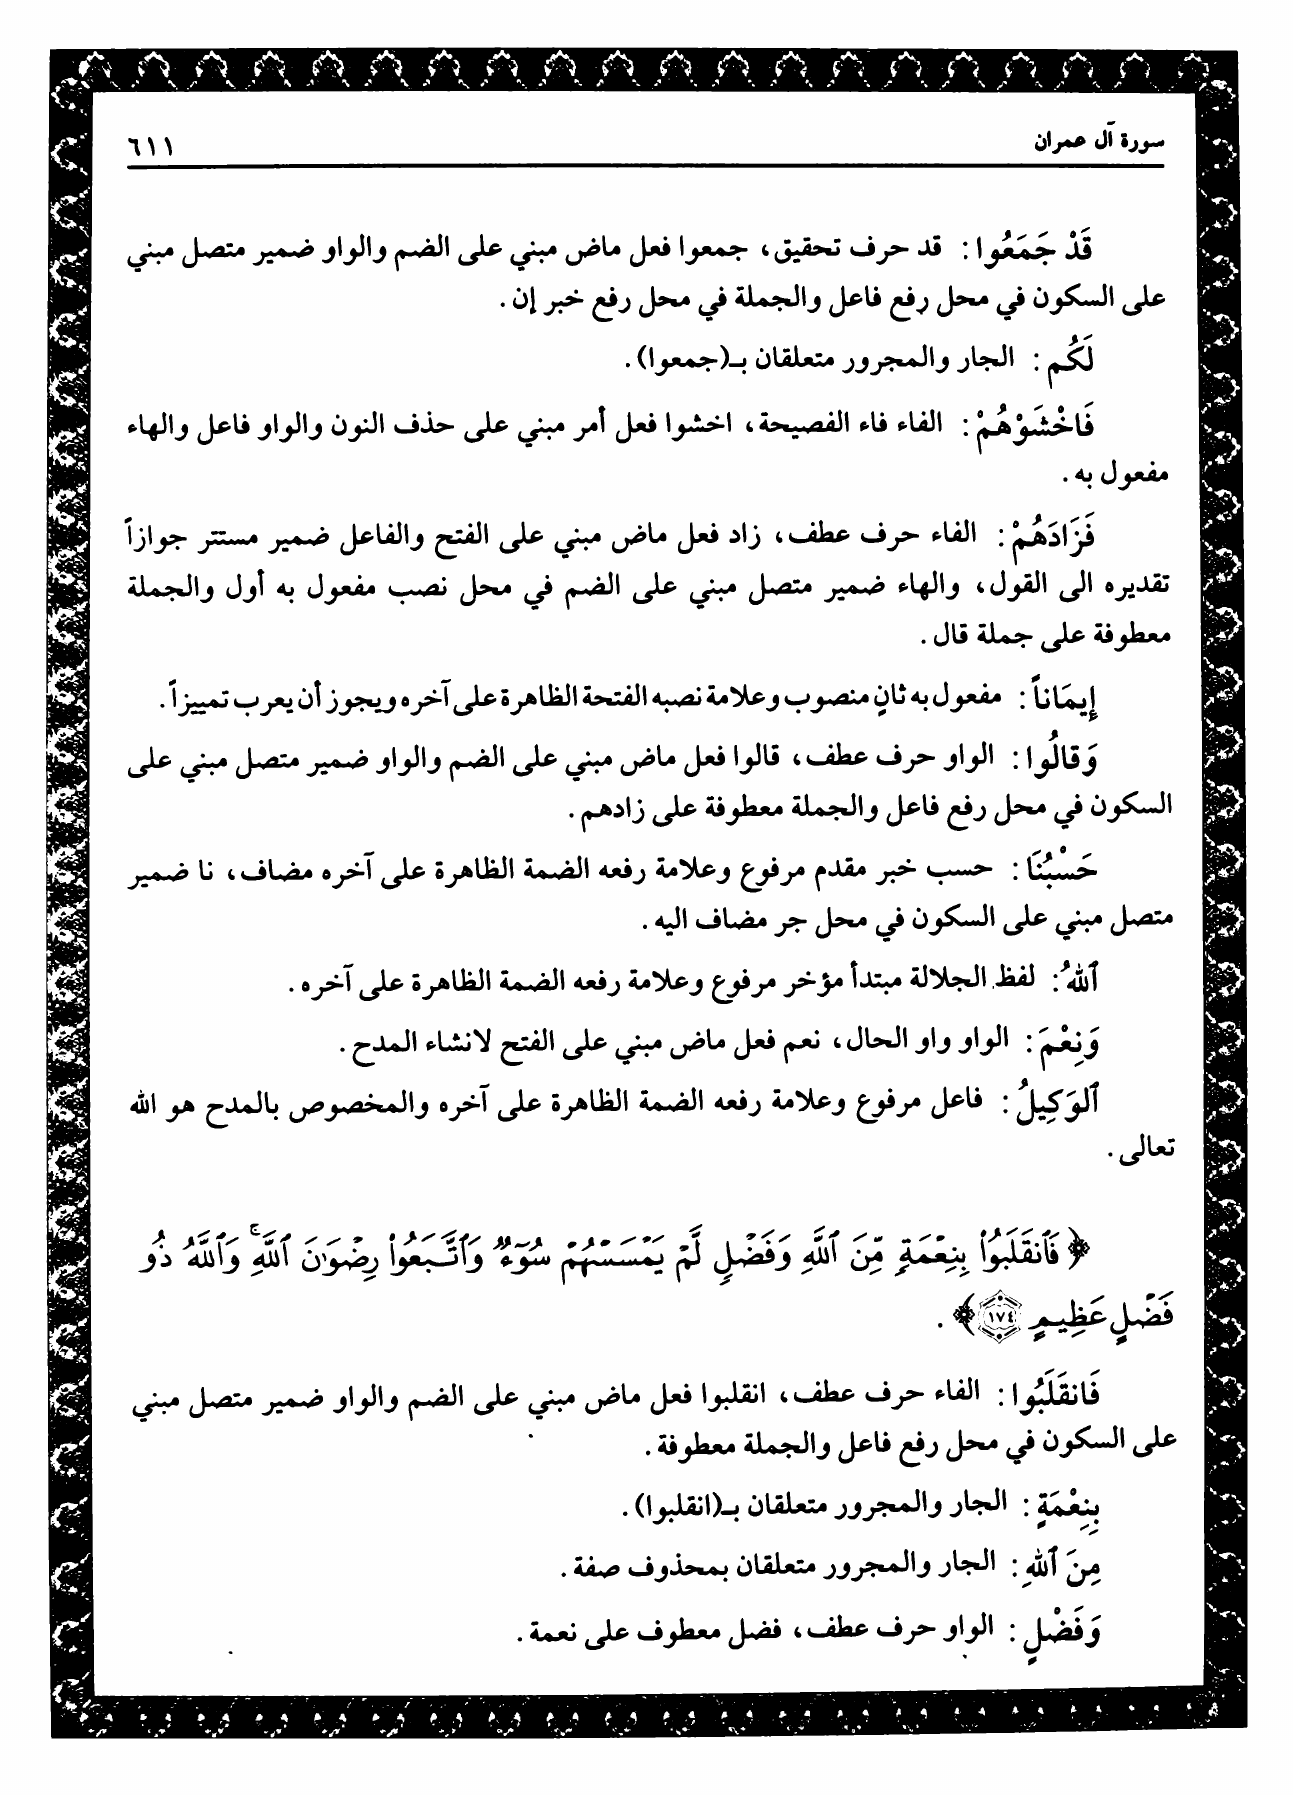 سورة آل عمران ٦١١
قَدْ جَمَعُوا : قد حرف تحقيق، جمعوا فعل ماض مبني على الضم والواو ضمير متصل مبني
على السكون في محل رفع فاعل والجملة في محل رفع خبر إن .
لَكُم : الجار والمجرور متعلقان بـ(جمعوا).
فَاخْشَوْهُمْ : الفاء فاء الفصيحة، اخشوا فعل أمر مبني على حذف النون والواو فاعل والهاء
مفعول به .
فَزَادَهُمْ : الفاء حرف عطف، زاد فعل ماض مبني على الفتح والفاعل ضمير مستتر جوازاً
تقديره الى القول، والهاء ضمير متصل مبني على الضم في محل نصب مفعول به أول والجملة
معطوفة على جملة قال .
إِيمَاناً : مفعول به ثانٍ منصوب وعلامة نصبه الفتحة الظاهرة على آخره ويجوز أن يعرب تمييزاً .
وَقالُوا : الواو حرف عطف، قالوا فعل ماض مبني على الضم والواو ضمير متصل مبني على
السكون في محل رفع فاعل والجملة معطوفة على زادهم .
حَسْبُنَا : حسب خبر مقدم مرفوع وعلامة رفعه الضمة الظاهرة على آخره مضاف، نا ضمير
متصل مبني على السكون في محل جر مضاف اليه .
ٱللهُ : لفظ الجلالة مبتدأ مؤخر مرفوع وعلامة رفعه الضمة الظاهرة على آخره .
وَنِعْمَ : الواو واو الحال، نعم فعل ماض مبني على الفتح لانشاء المدح .
ٱلوَكِيلُ : فاعل مرفوع وعلامة رفعه الضمة الظاهرة على آخره والمخصوص بالمدح هو الله
تعالى .
﴿ فَٱنقَلَبُوا۟ بِنِعْمَةٍ مِّنَ ٱللَّهِ وَفَضْلٍ لَّمْ يَمْسَسْهُمْ سُوٓءٌ وَٱتَّبَعُوا۟ رِضْوَٰنَ ٱللَّهِ ۗ وَٱللَّهُ ذُو
فَضْلٍ عَظِيمٍ ١٧٤ ﴾ .
فَانقَلَبُوا : الفاء حرف عطف، انقلبوا فعل ماض مبني على الضم والواو ضمير متصل مبني
على السكون في محل رفع فاعل والجملة معطوفة .
بِنِعْمَةٍ : الجار والمجرور متعلقان بـ(انقلبوا).
مِنَ ٱللهِ : الجار والمجرور متعلقان بمحذوف صفة .
وَفَضْلٍ : الواو حرف عطف، فضل معطوف على نعمة .